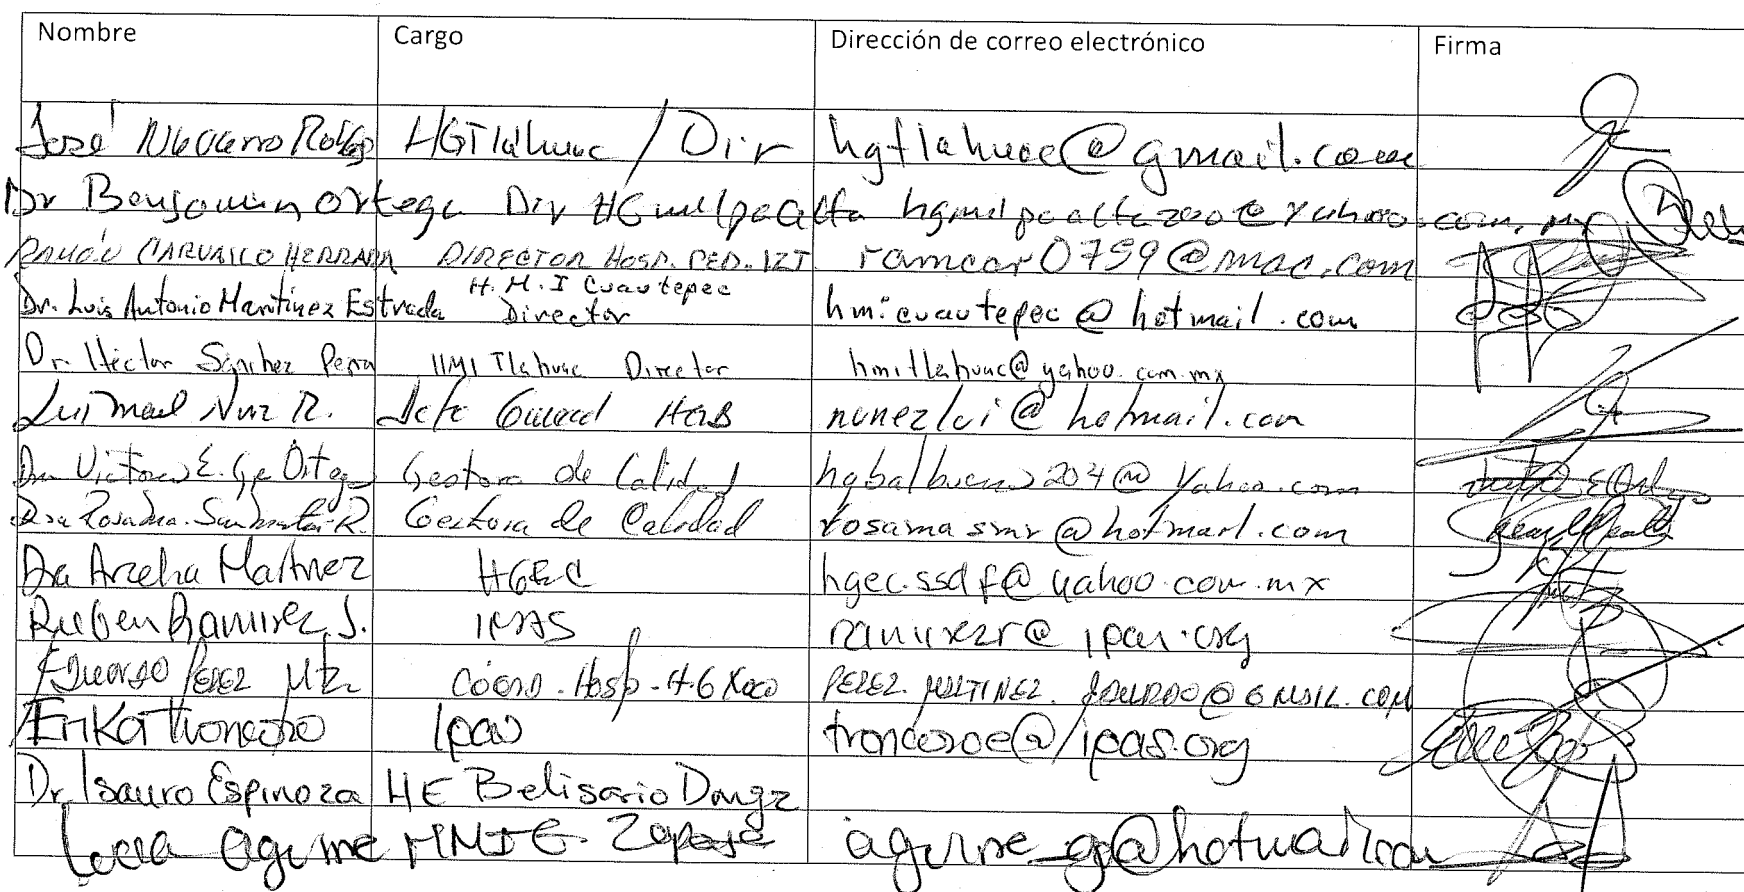 Nombre Cargo Dirección de correo electrónico Firma
José HGTlahuac / Dir hgtlahuac@gmail.com
Dr Benjamin Ortega Dir HG milpaalta hgmilpaalta200@yahoo.com.mx
RAMÓN CARVAJCO HERRADA DIRECTOR HOSP. PED. IZT ramcar0759@mac.com
H. M. I Cuautepec
Dr. Luis Antonio Martinez Estrada Director hmicuautepec@hotmail.com
Dr. Héctor Sánchez HMI Tlahuac Director hmitlahuac@yahoo.com.mx
R. nunezlui@hotmail.com
E. Ortega Gestora de Calidad hgbalbuena204@Yahoo.com
Dra Rosalina R. Gestora de Calidad rosamasmr@hotmail.com
Dra Arzelia Martinez HGEC hgec.ssdf@yahoo.com.mx
Ruben Ramirez S. IPAS ramirezr@ipas.org
Eduardo PEREZ Mtz Coord. Hosp. H.G Xoco PEREZ.MARTINEZ.EDUARDO@GMAIL.COM
Erika Troncoso Ipas troncosoe@ipas.org
Dr. Isauro Espinoza HE Belisario Domgz
aguirre_g@hotmail.com